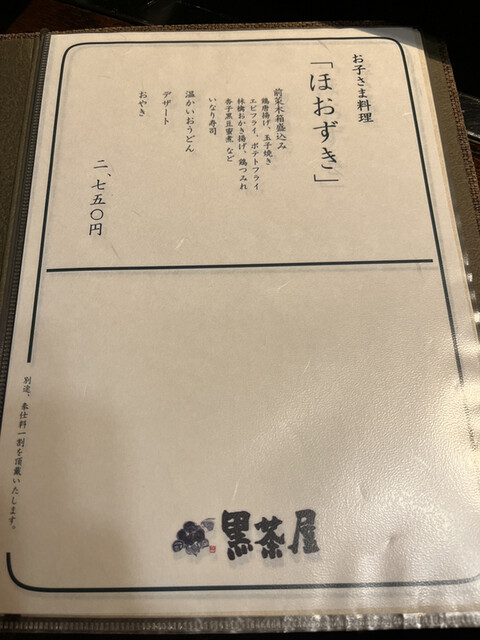 お子さま料理
「ほおずき」
前菜木箱盛込み
鶏唐揚げ、玉子焼き
エビフライ、ポテトフライ
林檎おかき揚げ、鶏つみれ
杏子黒豆蜜煮 など
いなり寿司
温かいおうどん
デザート
おやき
二、七五〇円
別途、奉仕料一割を頂戴いたします。
黒茶屋